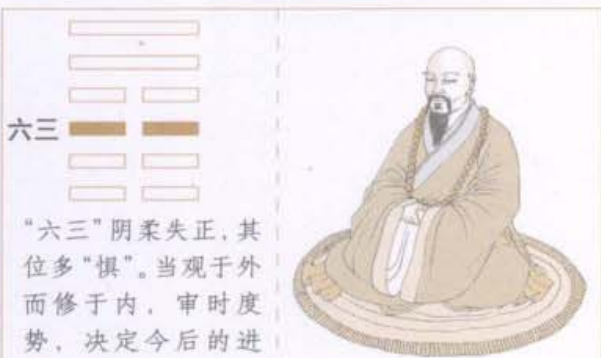 六三
“六三”阴柔失正，其
位多“惧”。当观于外
而修于内，审时度
势，决定今后的进